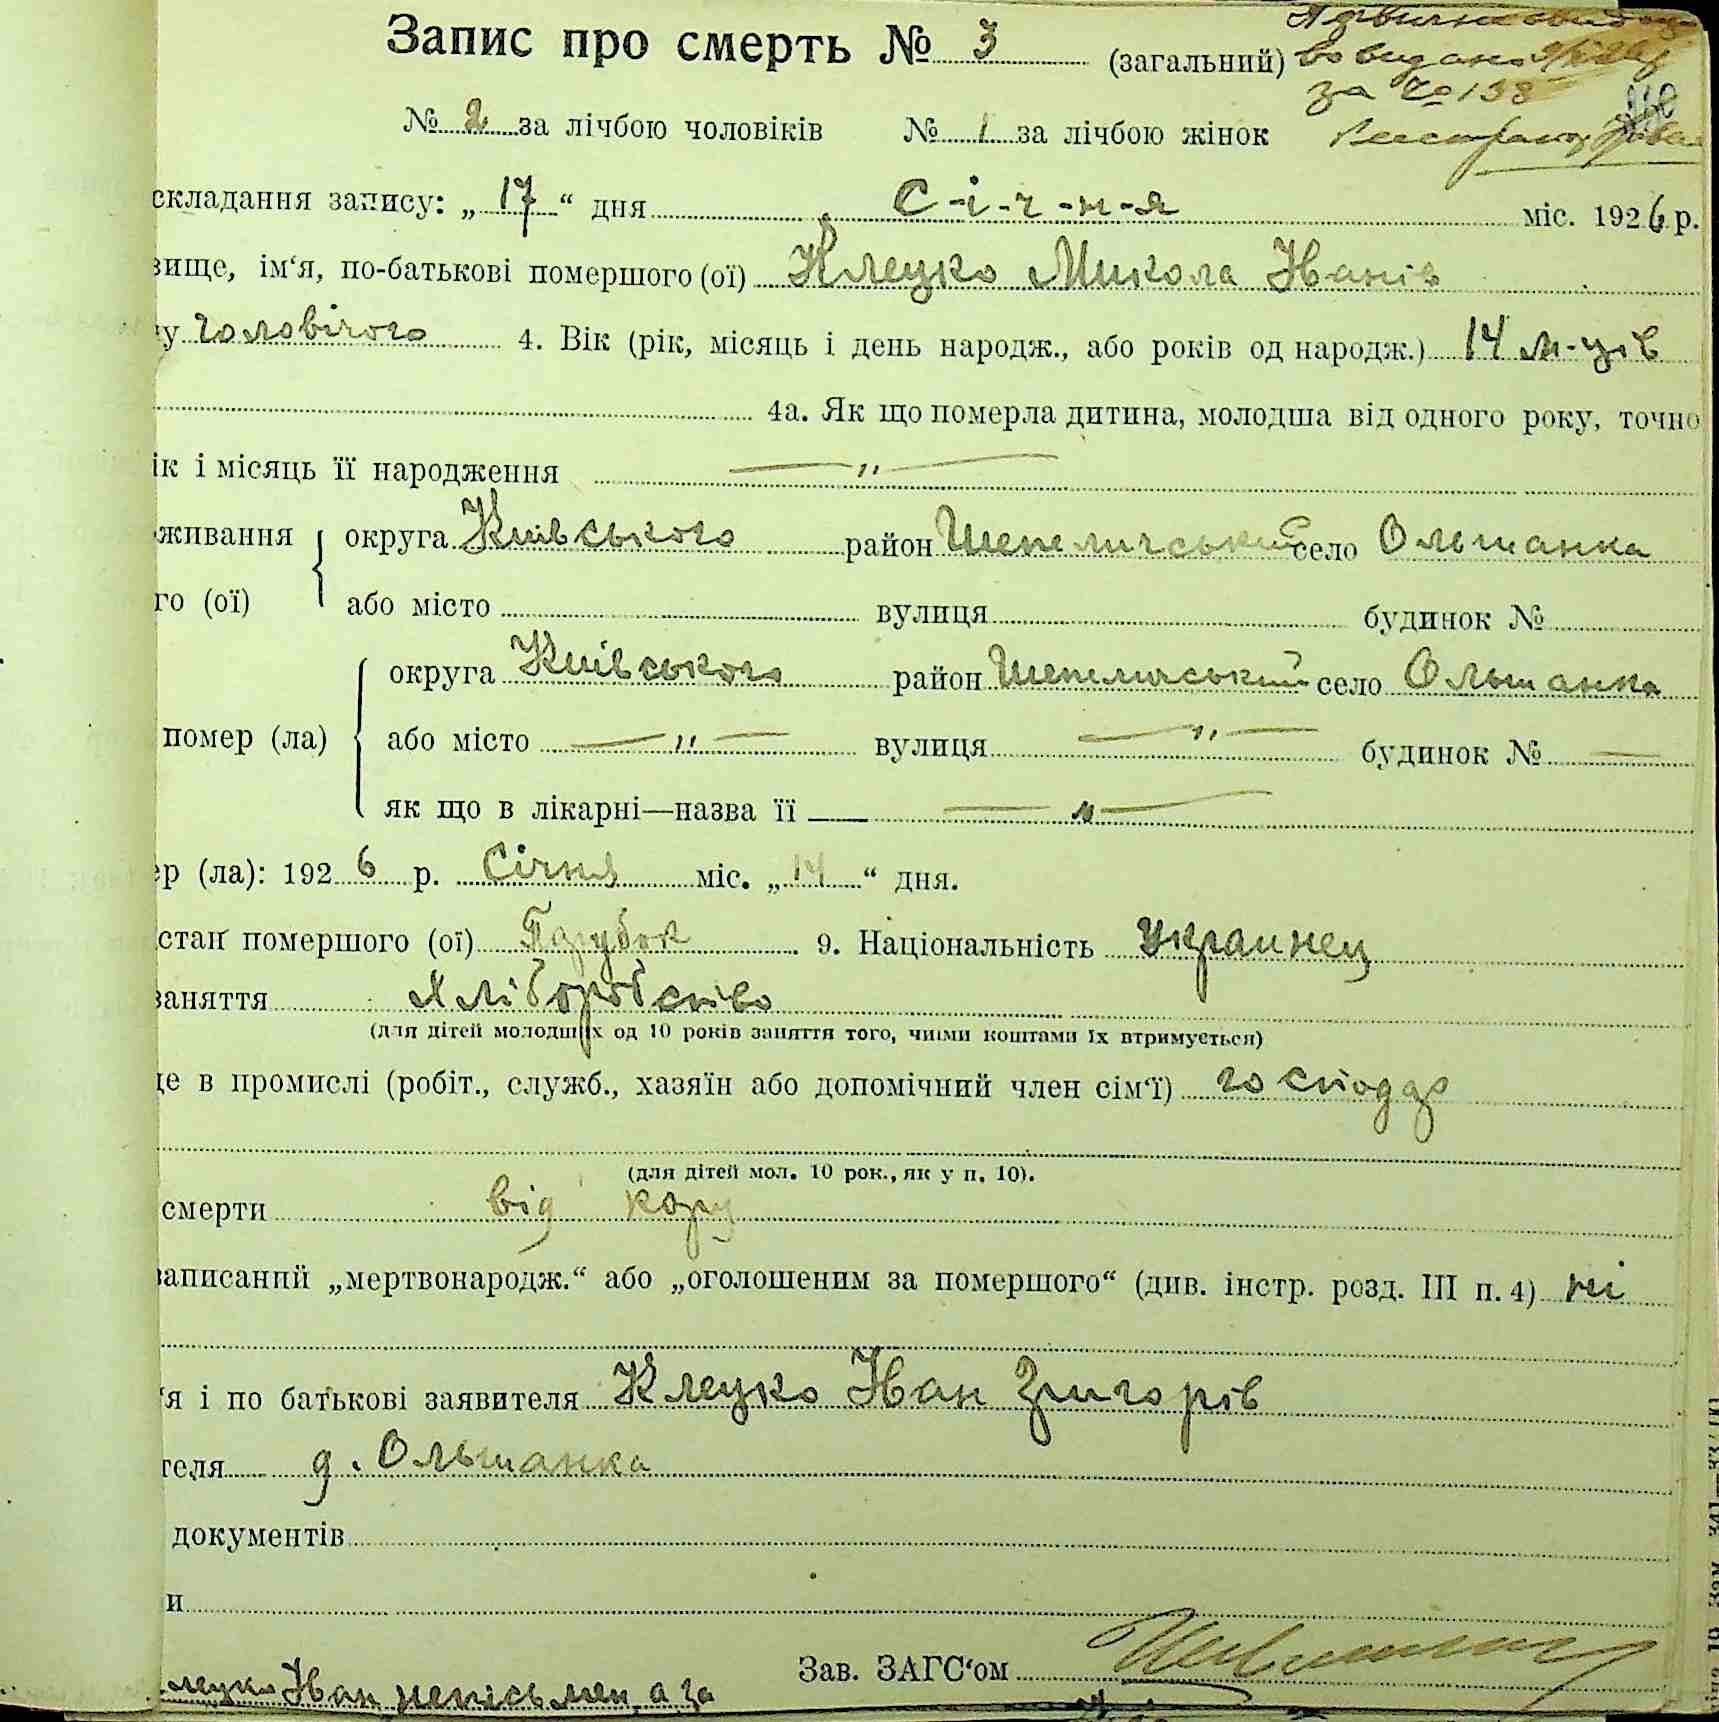 Запис про смерть № 3 (загальний)
за № 138
№ 2 за лічбою чоловіків № 1 за лічбою жінок
складання запису: „17“ дня С-і-ч-н-я міс. 1926 р.
вище, ім‘я, по-батькові помершого (ої) Клецко Микола Іванів
у чоловічого 4. Вік (рік, місяць і день народж., або років од народж.) 14 м-ців
4а. Як що померла дитина, молодша від одного року, точно
ік і місяць її народження —„—
живання округа Київського район Шепеличський село Ольшанка
го (ої) або місто вулиця будинок №
округа Київського район Шепеличський село Ольшанка
помер (ла) або місто —„— вулиця —„— будинок № —
як що в лікарні—назва її —„—
ер (ла): 1926 р. Січня міс. „14“ дня.
стан помершого (ої) Парубок 9. Національність Украинец
заняття Хліборобство
(для дітей молодших од 10 років заняття того, чиїми коштами їх втримується)
це в промислі (робіт., служб., хазяїн або допомічний член сім‘ї) господар
(для дітей мол. 10 рок., як у п. 10).
смерти від кору
записаний „мертвонародж.“ або „оголошеним за помершого“ (див. інстр. розд. III п. 4) ні
‘я і по батькові заявителя Клецко Іван Григорів
теля д. Ольшанка
документів
и
Зав. ЗАГС‘ом
лецко Іван неписьмен, а за